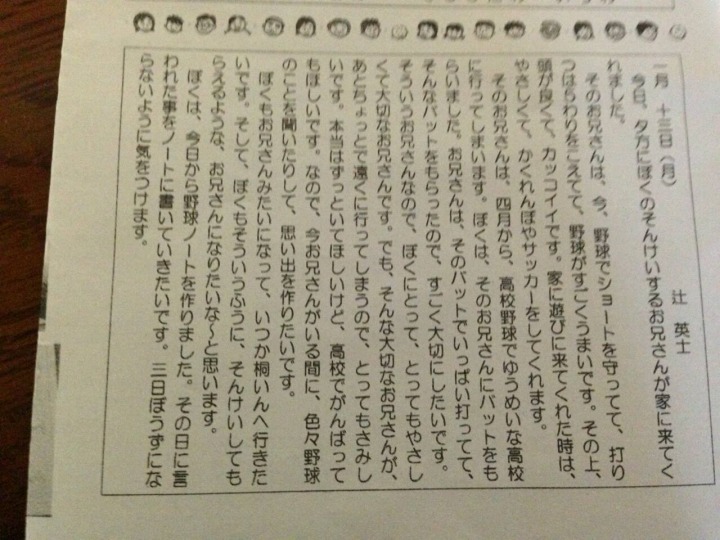 一月 十三日(月)
辻 英士
今日、夕方にぼくのそんけいするお兄さんが家に来てく
れました。
そのお兄さんは、今、野球でショートを守ってて、打り
つはちわりをこえてて、野球がすごくうまいです。その上、
頭が良くて、カッコイイです。家に遊びに来てくれた時は、
やさしくて、かくれんぼやサッカーをしてくれます。
そのお兄さんは、四月から、高校野球でゆうめいな高校
に行ってしまいます。ぼくは、そのお兄さんにバットをも
らいました。お兄さんは、そのバットでいっぱい打ってて、
そんなバットをもらったので、すごく大切にしたいです。
そういうお兄さんなので、ぼくにとって、とってもやさし
くて大切なお兄さんです。でも、そんな大切なお兄さんが、
あとちょっとで遠くに行ってしまうので、とってもさみし
いです。本当はずっといてほしいけど、高校でがんばって
もほしいです。なので、今お兄さんがいる間に、色々野球
のことを聞いたりして、思い出を作りたいです。
ぼくもお兄さんみたいになって、いつか桐いんへ行きた
いです。そして、ぼくもそういうふうに、そんけいしても
らえるような、お兄さんになりたいな〜と思います。
ぼくは、今日から野球ノートを作りました。その日に言
われた事をノートに書いていきたいです。三日ぼうずにな
らないように気をつけます。